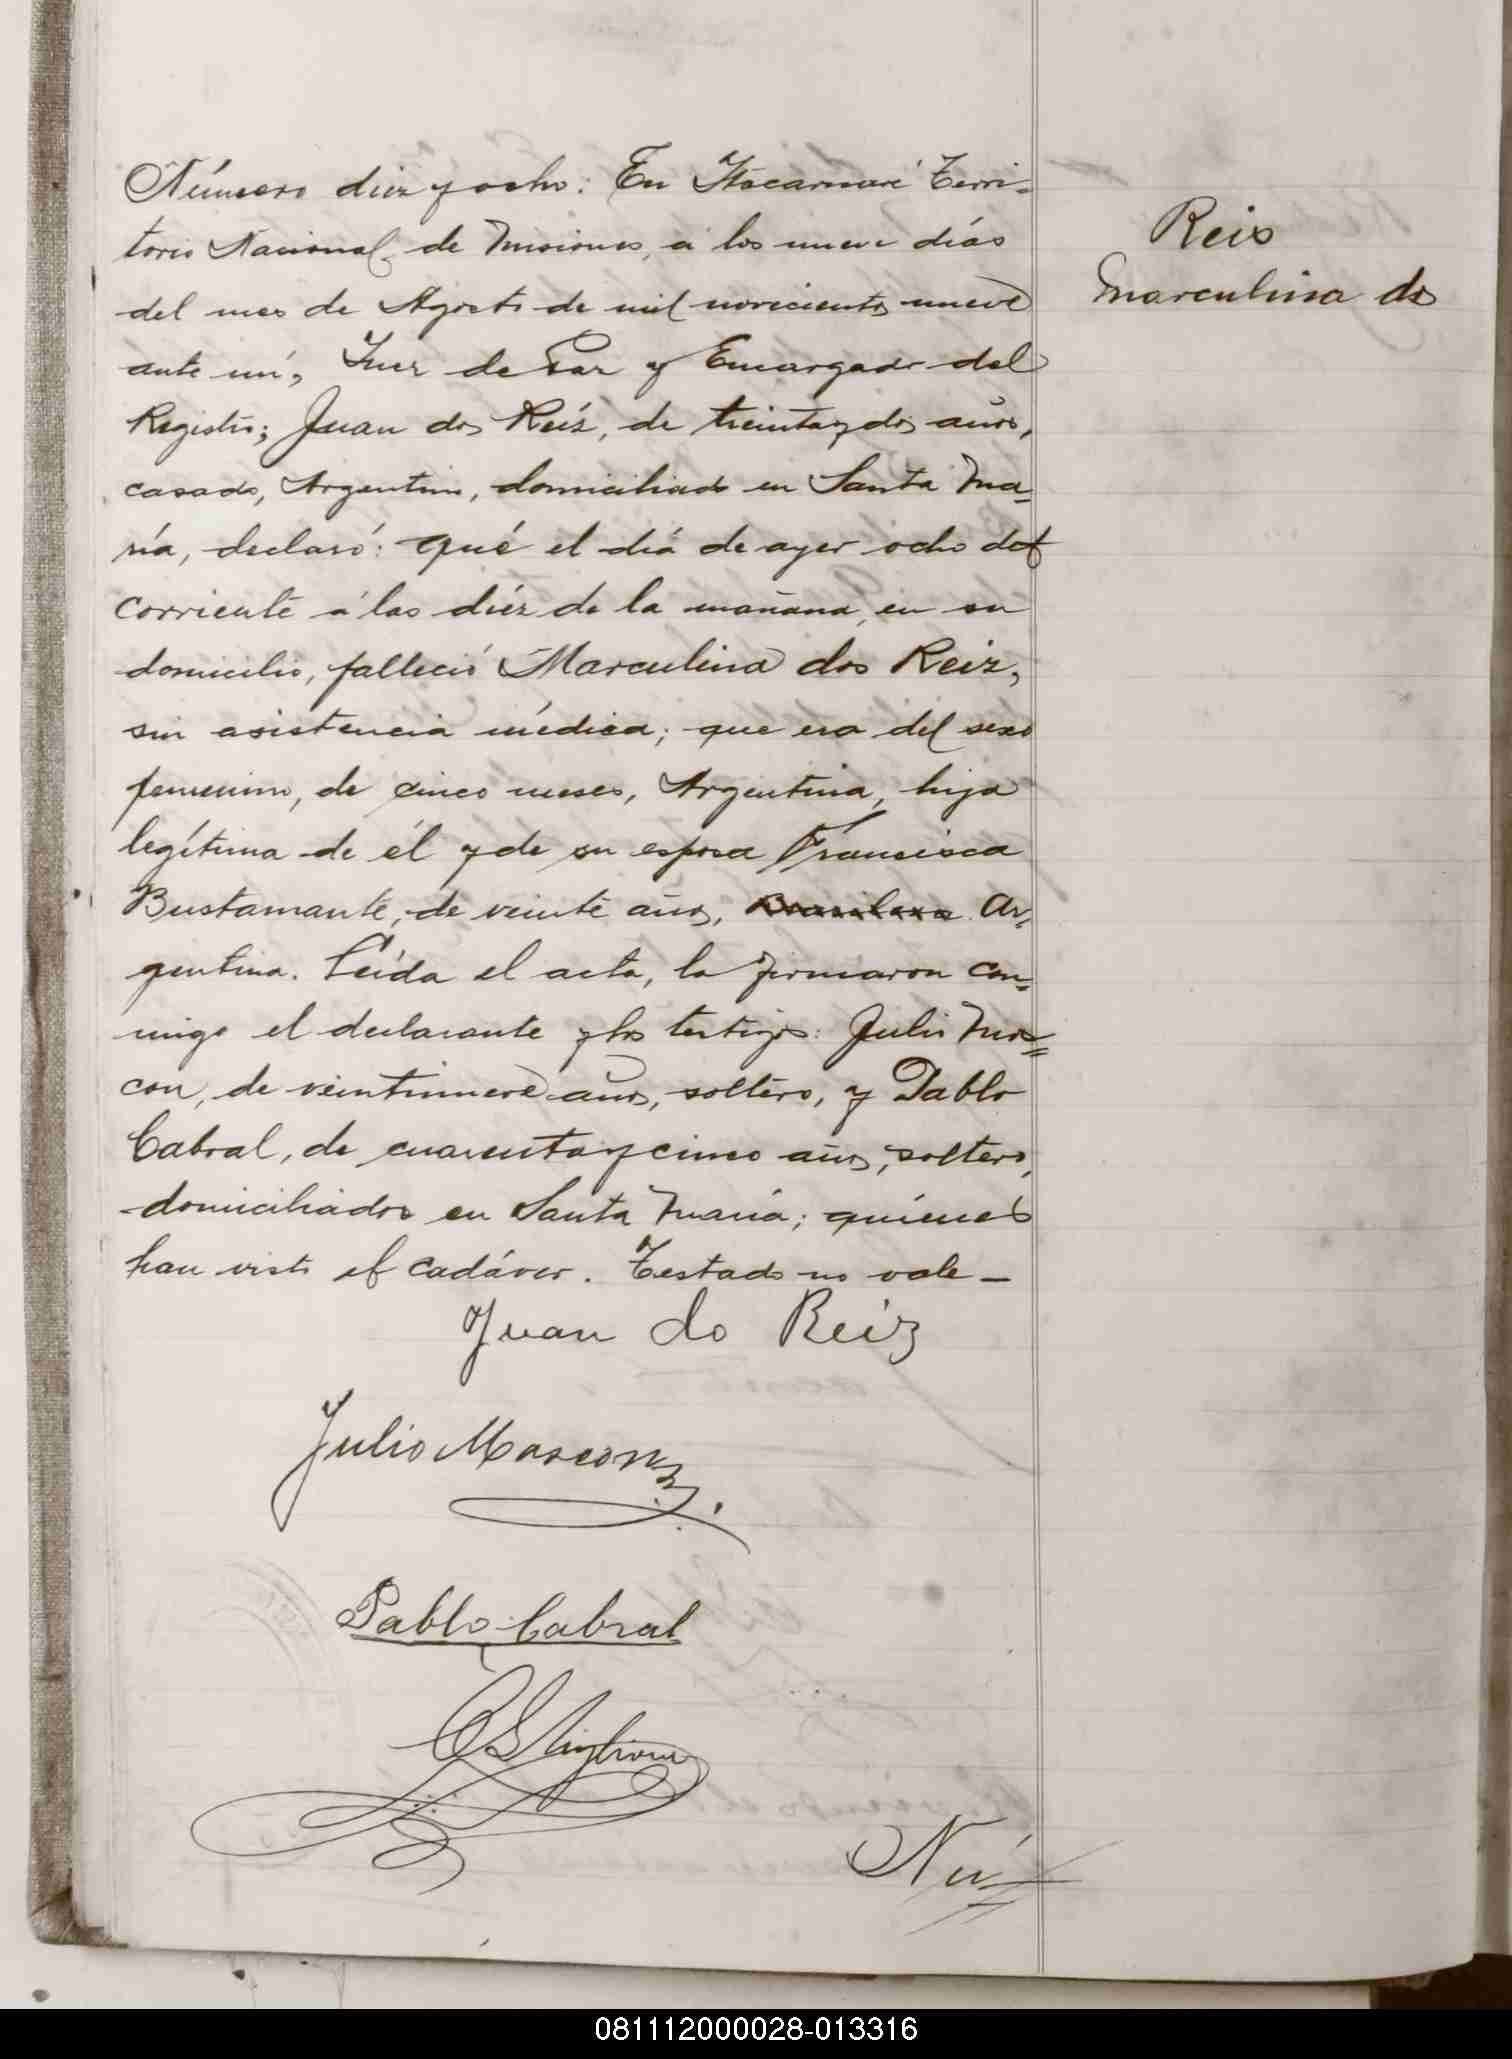 Número diez y ocho: En Itacaruaré Terri=
torio Nacional de Misiones, á los nueve días
del mes de Agosto de mil novecientos nueve
ante mí, Juez de Paz y Encargado del
Registro; Juan dos Reiz, de treinta y dos años,
casado, Argentino, domiciliado en Santa Ma=
ría, declaró: Qué el día de ayer ocho del
corriente á las diéz de la mañana, en su
domicilio, falleció Marculina dos Reiz,
sin asistencia médica; que era del sexo
femenino, de cinco meses, Argentina, hija
legítima de él y de su esposa Francisca
Bustamante, de veinte años, Brasilera Ar=
gentina. Leída el acta, la firmaron con=
migo el declarante y los testigos: Julio Mas=
con, de veintinueve años, soltero, y Pablo
Cabral, de cuarenta y cinco años, soltero,
domiciliados en Santa María; quienes
han visto el cadáver. Testado no vale—
Juan do Reiz
Julio Mascon
Pablo Cabral
Nú=
Reis
Marculina dos
081112000028-013316